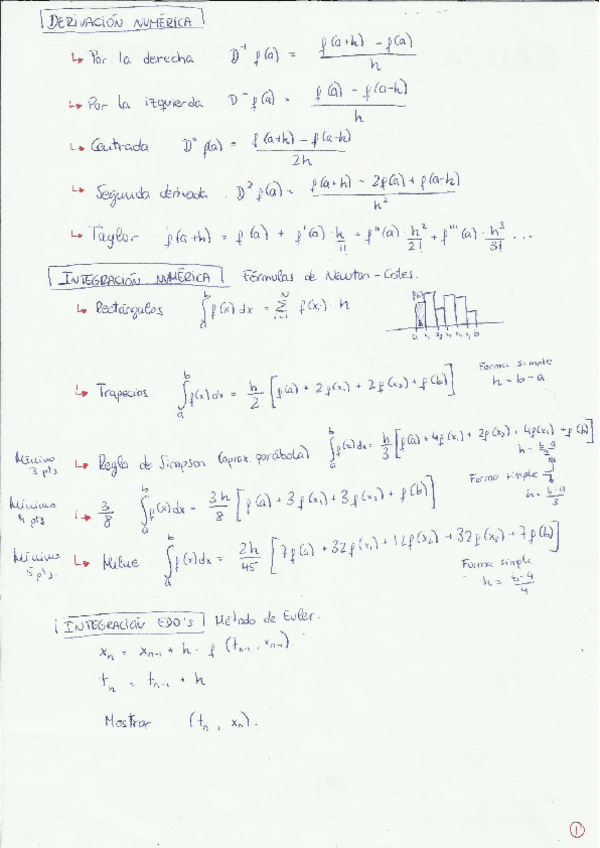 DERIVACIÓN NUMÉRICA
↳ Por la derecha D⁺ f(a) = (f(a+h) - f(a)) / h
↳ Por la izquierda D⁻ f(a) = (f(a) - f(a-h)) / h
↳ Centrada D° f(a) = (f(a+h) - f(a-h)) / 2h
↳ Segunda derivada. D² f(a) = (f(a+h) - 2f(a) + f(a-h)) / h²
↳ Taylor f(a+h) = f(a) + f'(a) · h/1! + f''(a) · h²/2! + f'''(a) · h³/3! ...
INTEGRACIÓN NUMÉRICA Fórmulas de Newton-Cotes.
↳ Rectángulos ∫ₐᵇ f(x) dx = Σᵢ₌₁ᴺ f(xᵢ) · h
↳ Trapecios ∫ₐᵇ f(x) dx = h/2 [f(a) + 2f(x₁) + 2f(x₂) + f(b)] Forma simple h = b-a
Mínimo 3 pts ↳ Regla de Simpson (aprox. parábola) ∫ₐᵇ f(x) dx = h/3 [f(a) + 4f(x₁) + 2f(x₂) + 4f(x₃) + f(b)]
Mínimo 4 pts ↳ 3/8 ∫ₐᵇ f(x) dx = 3h/8 [f(a) + 3f(x₁) + 3f(x₂) + f(b)] Forma simple h = (b-a)/3
Mínimo 5 pts ↳ Milne ∫ₐᵇ f(x) dx = 2h/45 [7f(a) + 32f(x₁) + 12f(x₂) + 32f(x₃) + 7f(b)]
Forma simple h = (b-a)/4
INTEGRACIÓN EDO'S Método de Euler.
xₙ = xₙ₋₁ + h · f(tₙ₋₁, xₙ₋₁)
tₙ = tₙ₋₁ + h
Mostrar (tₙ, xₙ).
1